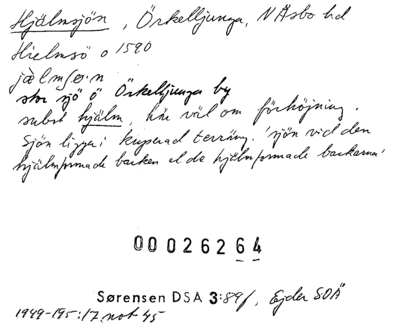 Hjälmsjön, Örkelljunga, N Åsbo hd
Hielmsö o 1590
stor sjö ö Örkelljunga by
subst hjälm, här väl om förhöjning.
Sjön ligger i kuperad terräng. 'sjön vid den
hjälmformade backen el de hjälmformade backarna'
00026264
Sørensen DSA 3:89f, Ejder SOÄ
1949-195:17 not 45